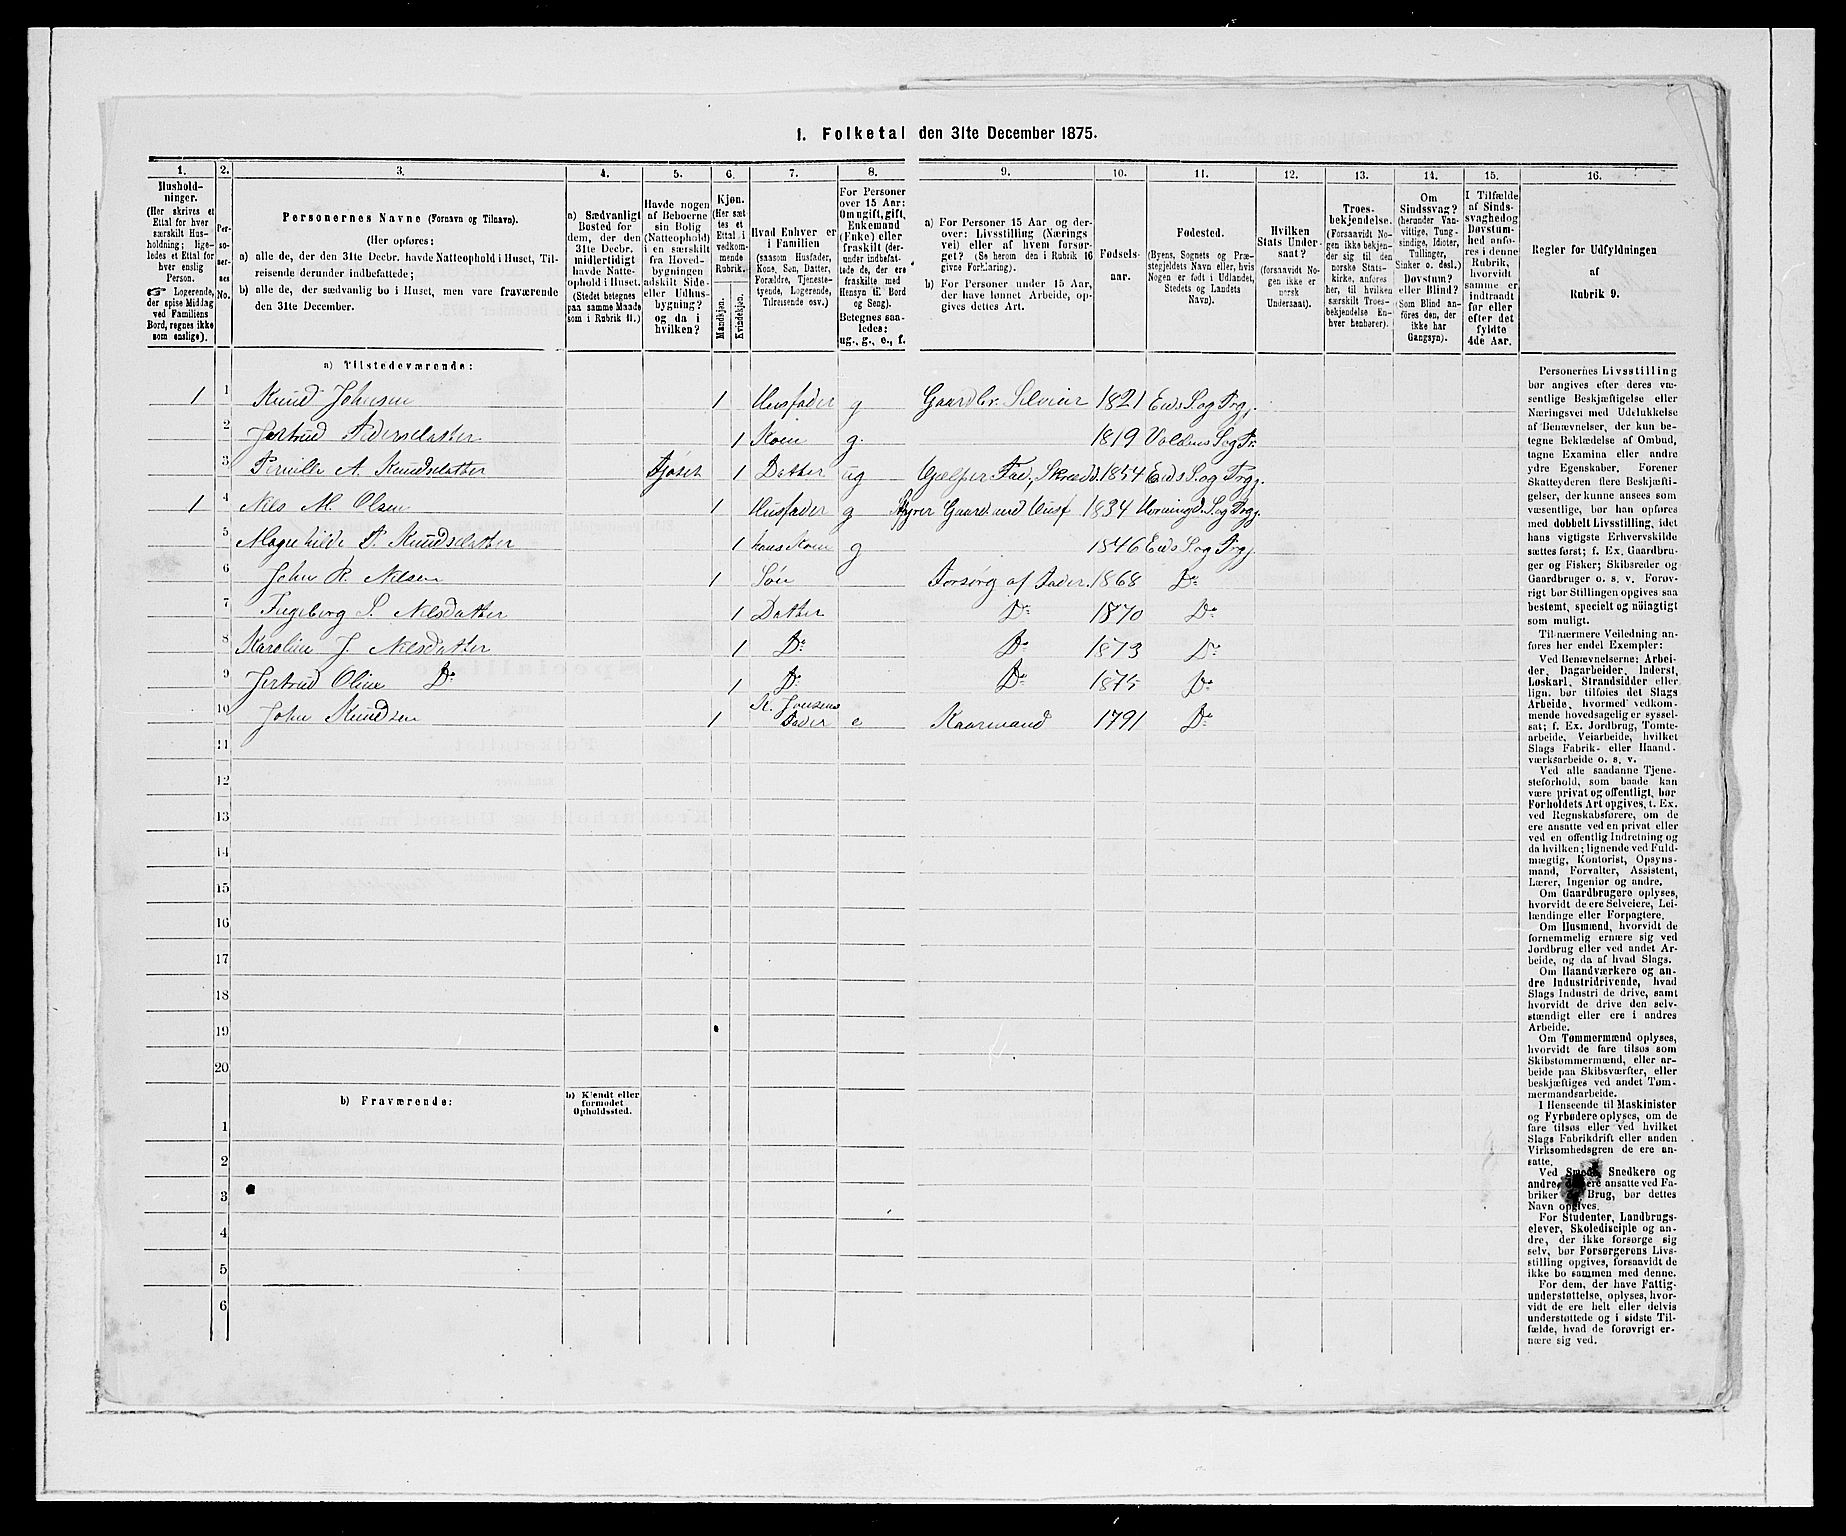 1. Folketal den 31te December 1875.
1. 2. 3. 4. 5. 6. 7. 8. 9. 10. 11. 12. 13. 14. 15. 16.
Hushold-
ninger.
(Her skrives et
Ettal for hver
særskilt Hus-
holdning; lige-
ledes et Ettal for
hver enslig
Person.
☞ Logerende,
der spise Middag
ved Familiens
Bord, regnes ikke
som enslige).
Per-
so-
ner-
nes
No.
Personernes Navne (Fornavn og Tilnavn).
(Her opføres:
a) alle de, der den 31te Decbr. havde Natteophold i Huset, Til-
reisende derunder indbefattede;
b) alle de, der sædvanlig bo i Huset, men vare fraværende
den 31te December.
a) Sædvanligt
Bosted for
dem, der den
31te Decbr.
midlertidigt
havde Natte-
ophold i Huset.
(Stedet betegnes
paa samme Maade
som i Rubrik 11.)
Havde nogen
af Beboerne
sin Bolig
(Natteophold)
i en særskilt
fra Hoved-
bygningen
adskilt Side-
eller Udhus-
bygning?
og da i
hvilken?
Kjøn.
(Her sæt-
tes et
Ettal i
vedkom-
mende
Rubrik.
Mandkjøn.
Kvindekjøn.
Hvad Enhver er
i Familien
(saasom Husfader,
Kone, Søn, Datter,
Forældre, Tjeneste-
tyende, Logerende,
Tilreisende osv.)
For Personer
over 15 Aar:
Om ugift, gift,
Enkemand
(Enke) eller
fraskilt (der-
under indbefat-
tede de, der ere
fraskilte med
Hensyn til Bord
og Seng).
Betegnes saa-
ledes:
ug., g., e., f.
a) For Personer 15 Aar og der-
over: Livsstilling (Nærings
vei) eller af hvem forsør-
get? (Se herom den i Rubrik 16
givne Forklaring).
b) For Personer under 15 Aar,
der have lønnet Arbeide, op-
gives dettes Art.
Fødsels-
aar.
Fødested.
(Byens, Sognets og Præ-
stegjeldets Navn eller, hvis
Nogen er født i Udlandet,
Stedets og Landets
Navn).
Hvilken
Stats Under-
saat?
(forsaavidt No-
gen ikke er
norsk
Undersaat).
Troes-
bekjendelse.
(Forsaavidt No-
gen ikke bekjen-
der sig til den
norske Stats-
kirke, anføres
her, til hvilken
særskilt Troes-
bekjendelse En-
hver henhører).
Om
Sindssvag?
(herunder Van-
vittige, Tung-
sindige, Idioter,
Tullinger,
Sinker o. desl.)
Døvstum?
eller Blind?
(Som Blind an-
føres den, der
ikke har
Gangsyn).
I Tilfælde
af Sinds-
svaghed og
Døvstum-
hed anfø-
res i denne
Rubrik,
hvorvidt
samme er
indtraadt
før eller
efter det
fyldte
4de Aar.
Regler for Udfyldningen
af
Rubrik 9.
a) Tilstedeværende:
1 1 Knud Johnsen 1 Husfader g Gaardbr. Selveier 1821 Eids S. og Prgj.
2 Jertrud Pedersdatter 1 Kone g. 1819 Voldens S og Pr.
3 Pernille A. Knudsdatter 1 Datter ug Hjælper Fad., Skrædd. 1854 Eids S. og Prgj.
1 4 Nils M. Olsen 1 Husfader g Styrer Gaard. med Husf 1834 Horningd. S. og Prgj.
5 Magnhilde P. Knudsdatter 1 hans Kone g 1846 Eids S. og Prgj.
6 John R. Nilsen 1 Søn Forsørg af Fader. 1868 Do
7 Ingeborg S. Nilsdatter 1 Datter Do 1870 Do
8 Karoline J. Nilsdatter 1 Do Do 1873 Do
9 Jertrud Oline Do 1 Do Do 1875 Do
10 John Knudsen 1 K. Jonsens Fader e Kaarmand 1791 Do
11
12
13
14
15
16
17
18
19
20
b) Fraværende:
b) Kjendt eller
formodet
Opholdssted.
1
2
3
4
5
6
Personernes Livsstilling
bør angives efter deres væ-
sentlige Beskjæftigelse eller
Næringsvei med Udelukkelse
af Benævnelser, der kun be-
tegne Beklædelse af Ombud,
tagne Examina eller andre
ydre Egenskaber. Forener
Skatteyderen flere Beskjæfti-
gelser, der kunne ansees som
væsentlige, bør han opføres
med dobbelt Livsstilling, idet
hans vigtigste Erhvervskilde
sættes først; f. Ex. Gaardbru-
ger og Fisker; Skibsreder og
Gaardbruger o. s. v. Forøv-
rigt bør Stillingen opgives saa
bestemt, specielt og nöiagtigt
som muligt.
Til nærmere Veiledning an-
føres her endel Exempler:
Ved Benævnelserne: Arbei-
der, Dagarbeider, Inderst,
Løskarl, Strandsidder eller
lign. bør tilføies det Slags
Arbeide, hvormed vedkom-
mende hovedsagelig er syssel-
sat; f. Ex. Jordbrug, Tomte-
arbeide, Veiarbeide, hvilket
Slags Fabrik- eller Haand-
værksarbeide o. s. v.
Ved alle saadanne Tjene-
steforhold, som baade kan
være privat og offentligt, bør
Forholdets Art opgives, t. Ex.
ved Regnskabsførere, om de
ere ansatte ved en privat eller
ved en offentlig Indretning og
da hvilken; lignende ved Fuld-
mægtig, Kontorist, Opsyns-
mand, Forvalter, Assistent,
Lærer, Ingeniør og andre.
Om Gaardbrugere oplyses,
hvorvidt de ere Selveiere, Lei-
lændinge eller Forpagtere.
Om Husmænd, hvorvidt de
fornemmelig ernære sig ved
Jordbrug eller ved andet Ar-
beide, og da af hvad Slags.
Om Haandværkere og an-
dre Industridrivende, hvad
Slags Industri de drive, samt
hvorvidt de drive den selv-
stændigt eller ere i andres
Arbeide.
Om Tømmermænd oplyses,
hvorvidt de fare tilsøs som
Skibstømmermænd, eller ar-
beide paa Skibsværfter, eller
beskjæftiges ved andet Tøm-
mermandsarbeide.
I Henseende til Maskinister
og Fyrbødere oplyses, om de
fare tilsøs eller ved hvilket
Slags Fabrikdrift eller anden
Virksomhedsgren de ere an-
satte.
Ved Smede, Snedkere og
andre, de ere ansatte ved Fa-
briker Brug, bør dettes
Navn opgives.
For Studenter, Landbrugs-
elever, Skoledisciple og an-
dre, der ikke forsørge sig
selv, bør Forsørgerens Livs-
stilling opgives, forsaavidt de
ikke bo sammen med denne.
For dem, der have Fattig-
understøttelse, oplyses, hvor-
vidt de ere helt eller delvis
understøttede og i sidste Til-
fælde, hvad de forøvrigt er-
nære sig ved.